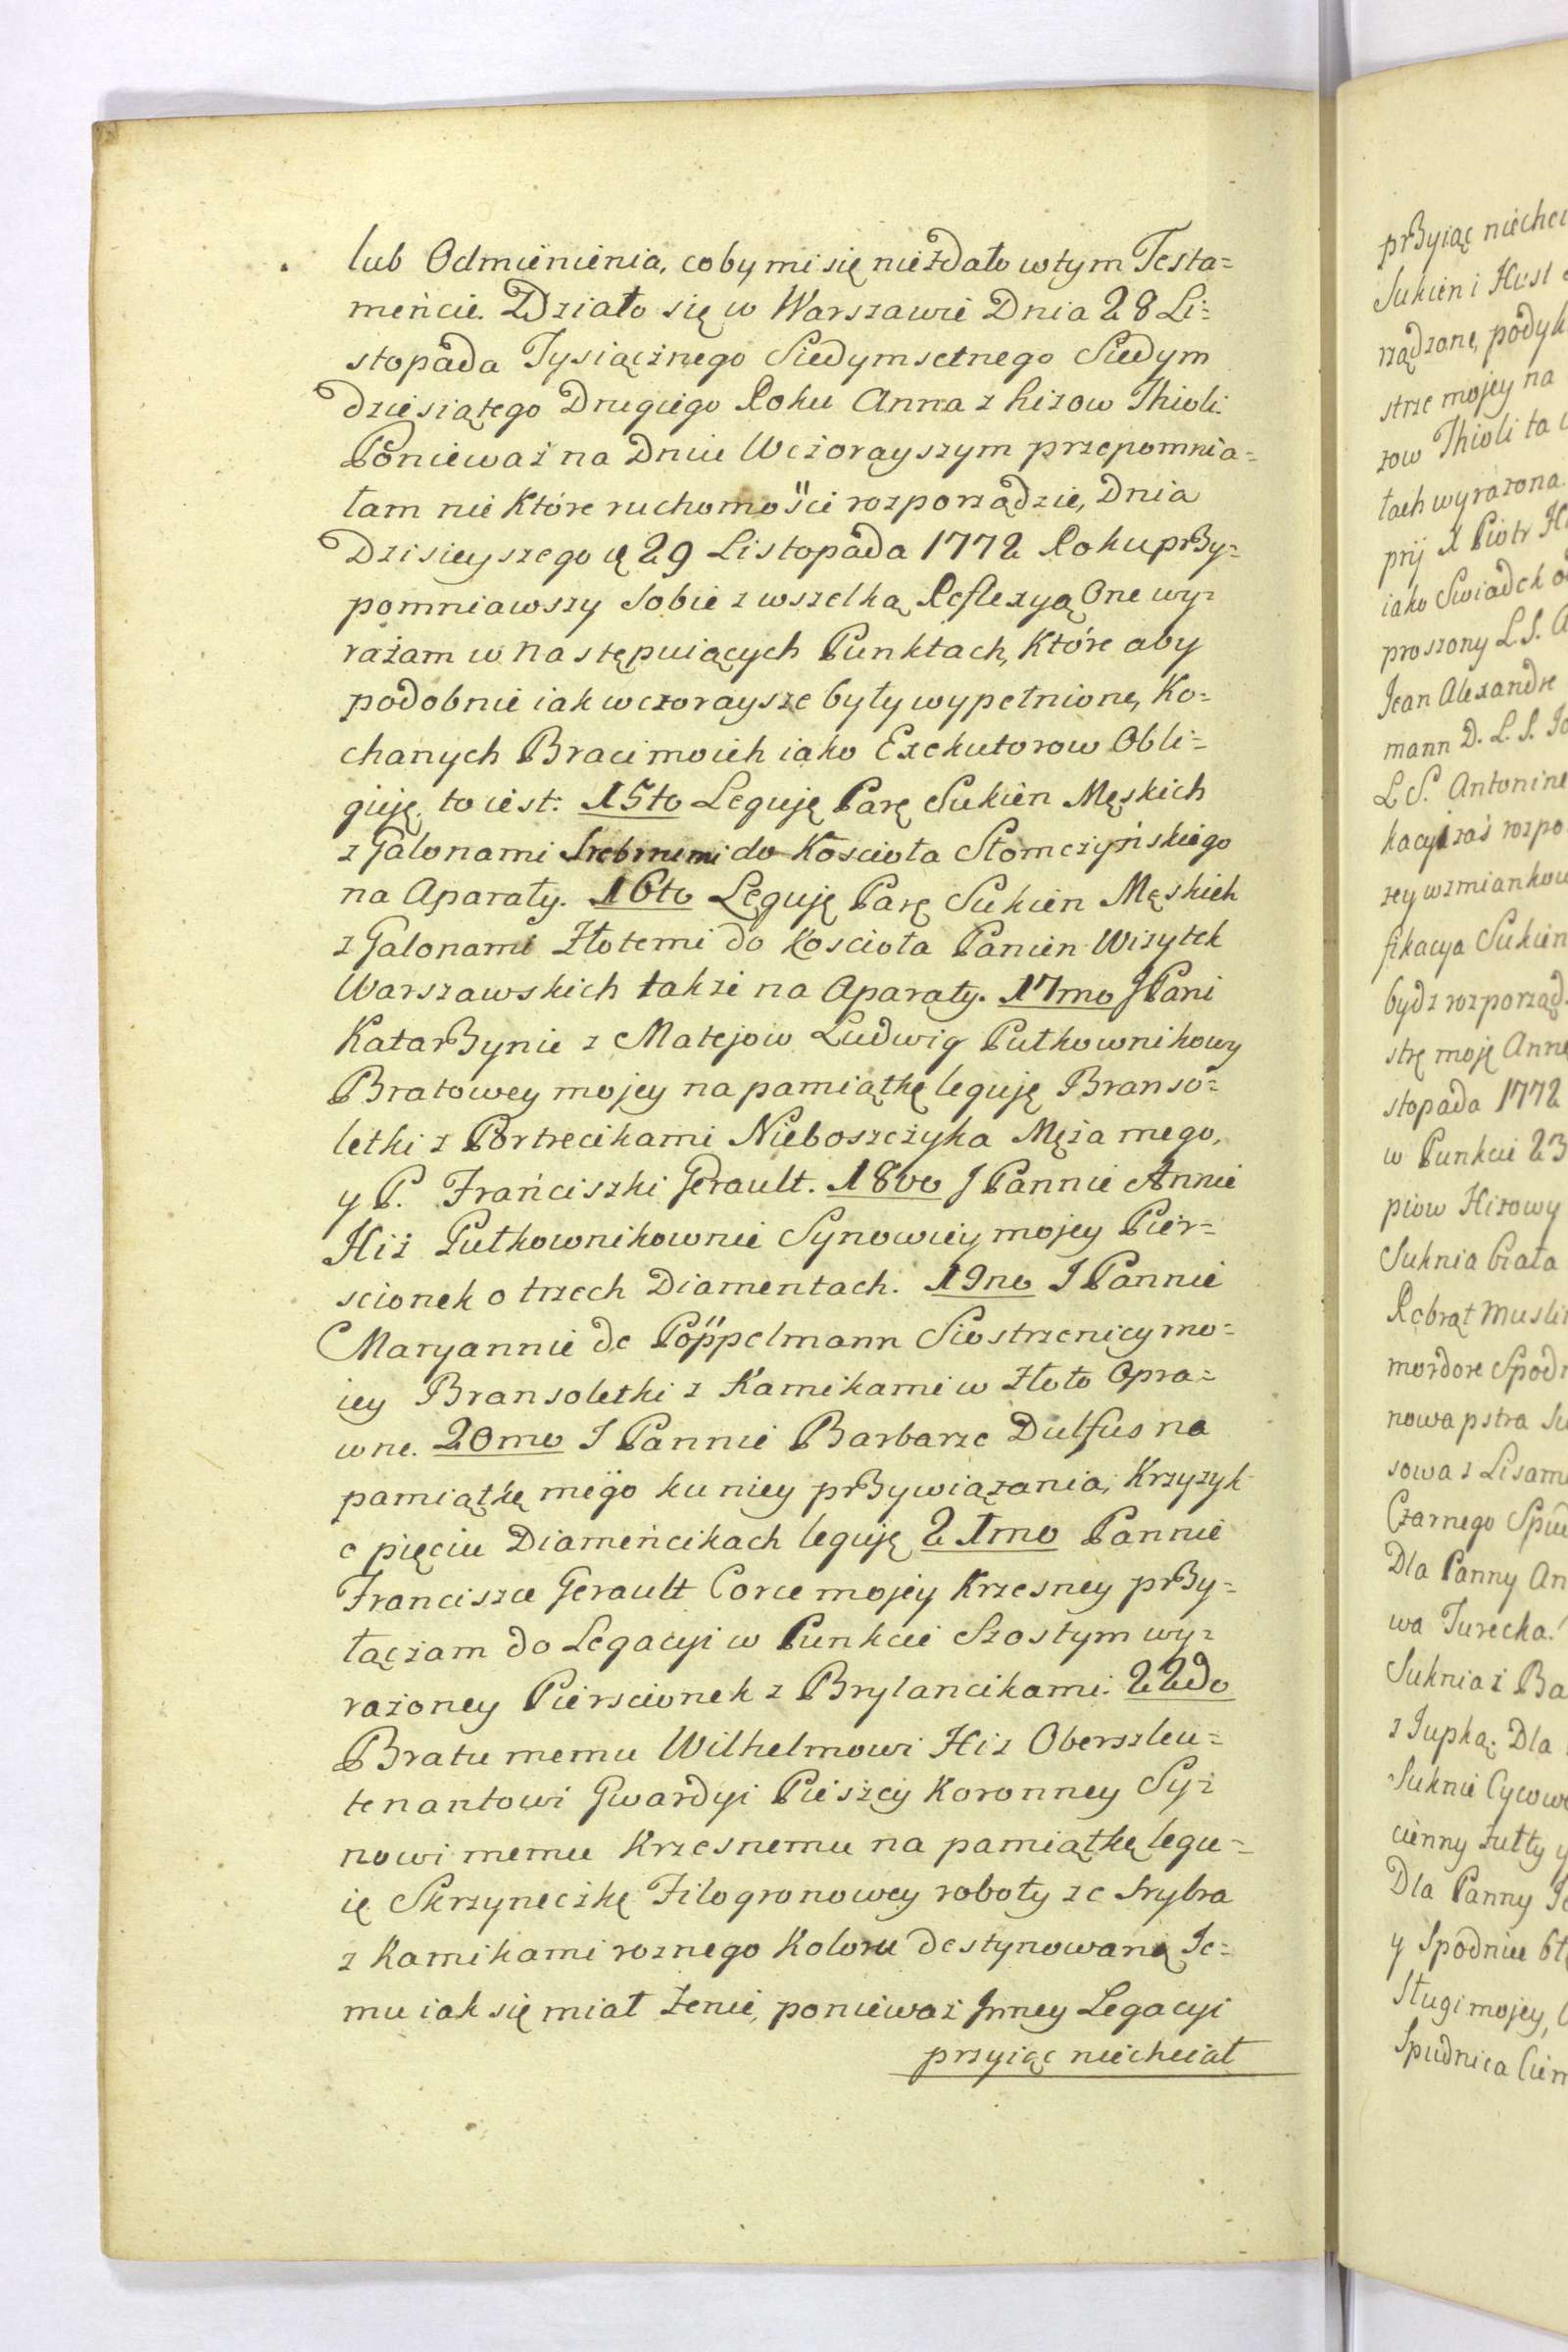 lub Odmienienia, coby mi się nieżdało w tym Testa=
meńcie. Działo się w Warszawie Dnia 28 Li=
stopada Tysiącżnego Siedymsetnego Siedym
dziesiątego Drugiego Roku Anna z Hizow Thioli.
Poniewaź na Dniu Wcżorayszym przepomnia=
łam nie które ruchomości rozporządzie, Dnia
Dzisieyszego ię 29 Listopada 1772 Roku przy=
pomniawszy sobie z wszelką Reflexyą One wy=
rażam w następuiących Punktach, które aby
podobnie iak wczoraysze były wypełnione, Ko=
chanych Braci moich iako Exekutorow Obli=
guję, to iest: 15to Leguję Parę Sukien Męskich
z Galonami Srebrnemi do Kościoła Słomczyńskiego
na Aparaty. 16to Leguję Parę Sukien Męskich
z Galonami Złotemi do Kościoła Panien Wizytek
Warszawskich także na Aparaty. 17mo JPani
Katarzynie z Matejow Ludwig Pułkownikowy
Bratowey mojey na pamiątkę leguję Branso=
letki z Portrecikami Nieboszczyka Męża mego,
y P. Frańciszki Gerault. 18vo J Pannie Annie
Hiż Pułkownikownie Synowiey mojey Pier=
scionek o trzech Diamentach. 19no J Pannie
Maryannie de Pöppelmann Siostrzenicy mo=
iey Bransoletki z Kamikami w Złoto Opra=
wne. 20mo J Pannie Barbarze Dulfus na
pamiątkę mego ku niey przywiązania, Krzyzyk
o pięciu Diameńcikach leguję 21mo Pannie
Franciszce Gerault Corce mojey Krzesney przy=
łączam do Legacyi w Punkcie Szostym wy=
rażoney Pierscionek z Brylancikami. 22do
Bratu memu Wilhelmowi Hiz Oberszleu=
tenantowi Gwardyi Pieszey Koronney Sy=
nowi memu Krzesnemu na pamiątkę legu=
ię Skrzyneczkę Filogronowey roboty ze srybra
z Kamikami roznego Koloru destynowaną Je=
mu iak się miał Żenie, ponieważ Jnney Legacyi
przyiąc niechciał
przyiąc niechci
Sukien i
rządzone, podyk
strze mojey na
zow Thioli ta
tach wyrażona.
prij X Piotr
iako Swiadek
proszony L.S.
Jean Alexandre
mann D. L. S.
L S. Antonine
kacyi zaś rozpo
zey wzmiankow
fikacya Sukien
bydz rozporząd
strę moję Annę
stopada 1772
w Punkcie 23
piow Hizowy
Suknia Biała
Rąbrąt Musli
mordore Spodn
nowa pstra Su
sowa z Lisam
Czarnego
Dla Panny An
wa Turecka.
Suknia z Ba
z Jupką. Dla
Suknie Cycowe
cienny żułty y
Dla Panny
y Spodnie
Sługi mojey,
Spudnica Ciem